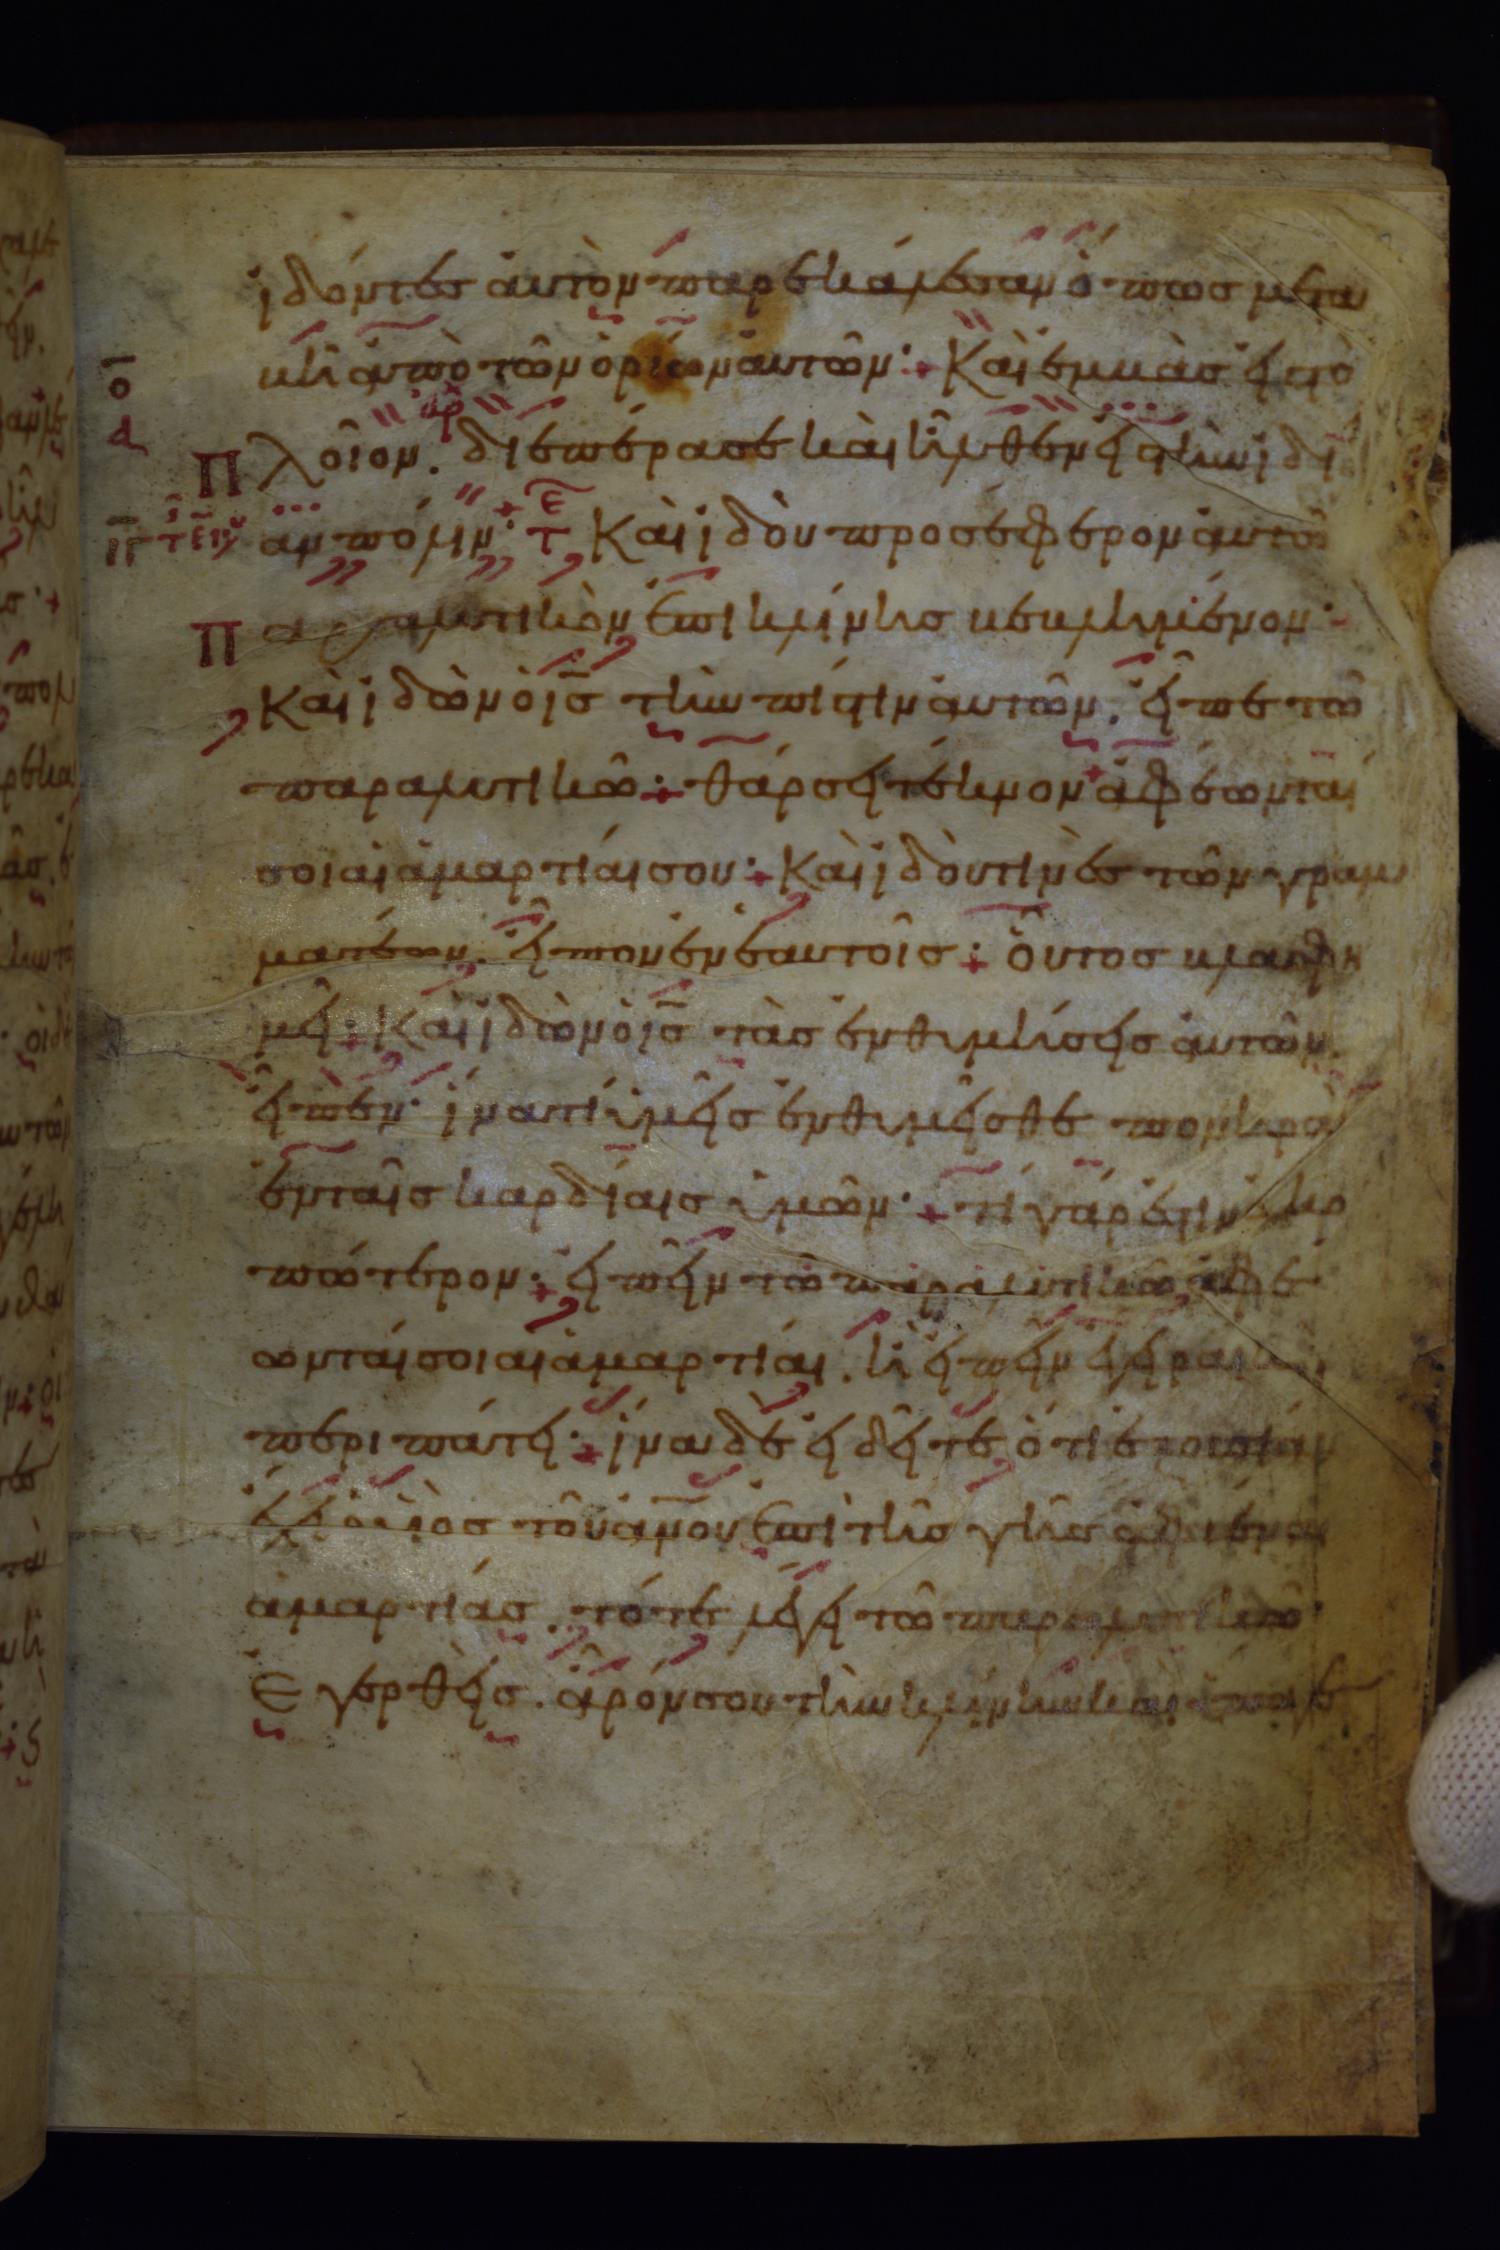 ἰδόντες ἀυτὸν παρεκάλεσαν ὅπως μετα
βῆ ἀπὸ τῶν ὁρίων ἀυτῶν: + Καὶ ἐμβὰς εἰς τὸ
ο
δ
Πλοῖον. διεπέρασε καὶ ἦλθεν εἰς τὴν ἰδί
αν πόλιν· + Καὶ ἰδοὺ προσέφερον ἀυτῶ
Παραλυτικὸν ἐπὶ κλίνης βεβλημένον·
Καὶ ἰδὼν ὁ ις τὴν πίστιν ἀυτῶν. εἶπε τῶ
παραλυτικῶ: + θάρσει τέκνον + ἀφέωνται
σοι αἱ ἁμαρτίαι σου: + Καὶ ἰδού τινὲς τῶν γραμ
ματέων. εἶπον ἐν ἑαυτοῖς: + οὗτος βλασφη
μεῖ: + Καὶ ἰδὼν ὁ ις τὰς ἐνθυμήσεις ἀυτῶν.
εἶπεν· ἵνα τί ὑμεῖς ἐνθυμεῖσθε πονηρὰ
ἐν ταῖς καρδίαις ὑμῶν· + τί γάρ ἐστιν ἐυκο
πώτερον: + εἰπεῖν τῶ παραλυτικῶ ἀφέ
ωνταί σοι αἱ ἁμαρτίαι. ἢ εἰπεῖν ἔγειραι
περιπάτει: + ἵνα δὲ εἰδῆτε ὅτι ἐξουσίαν
ἔχει ὁ υἱος τοῦ ἀνου ἐπὶ τῆς γῆς ἀφιέναι
ἁμαρτίας. τότε λέγει τῶ παραλυτικῶ·
Ἐγερθεὶς. ἆρόν σου τὴν κλίνην καὶ ὕπαγε